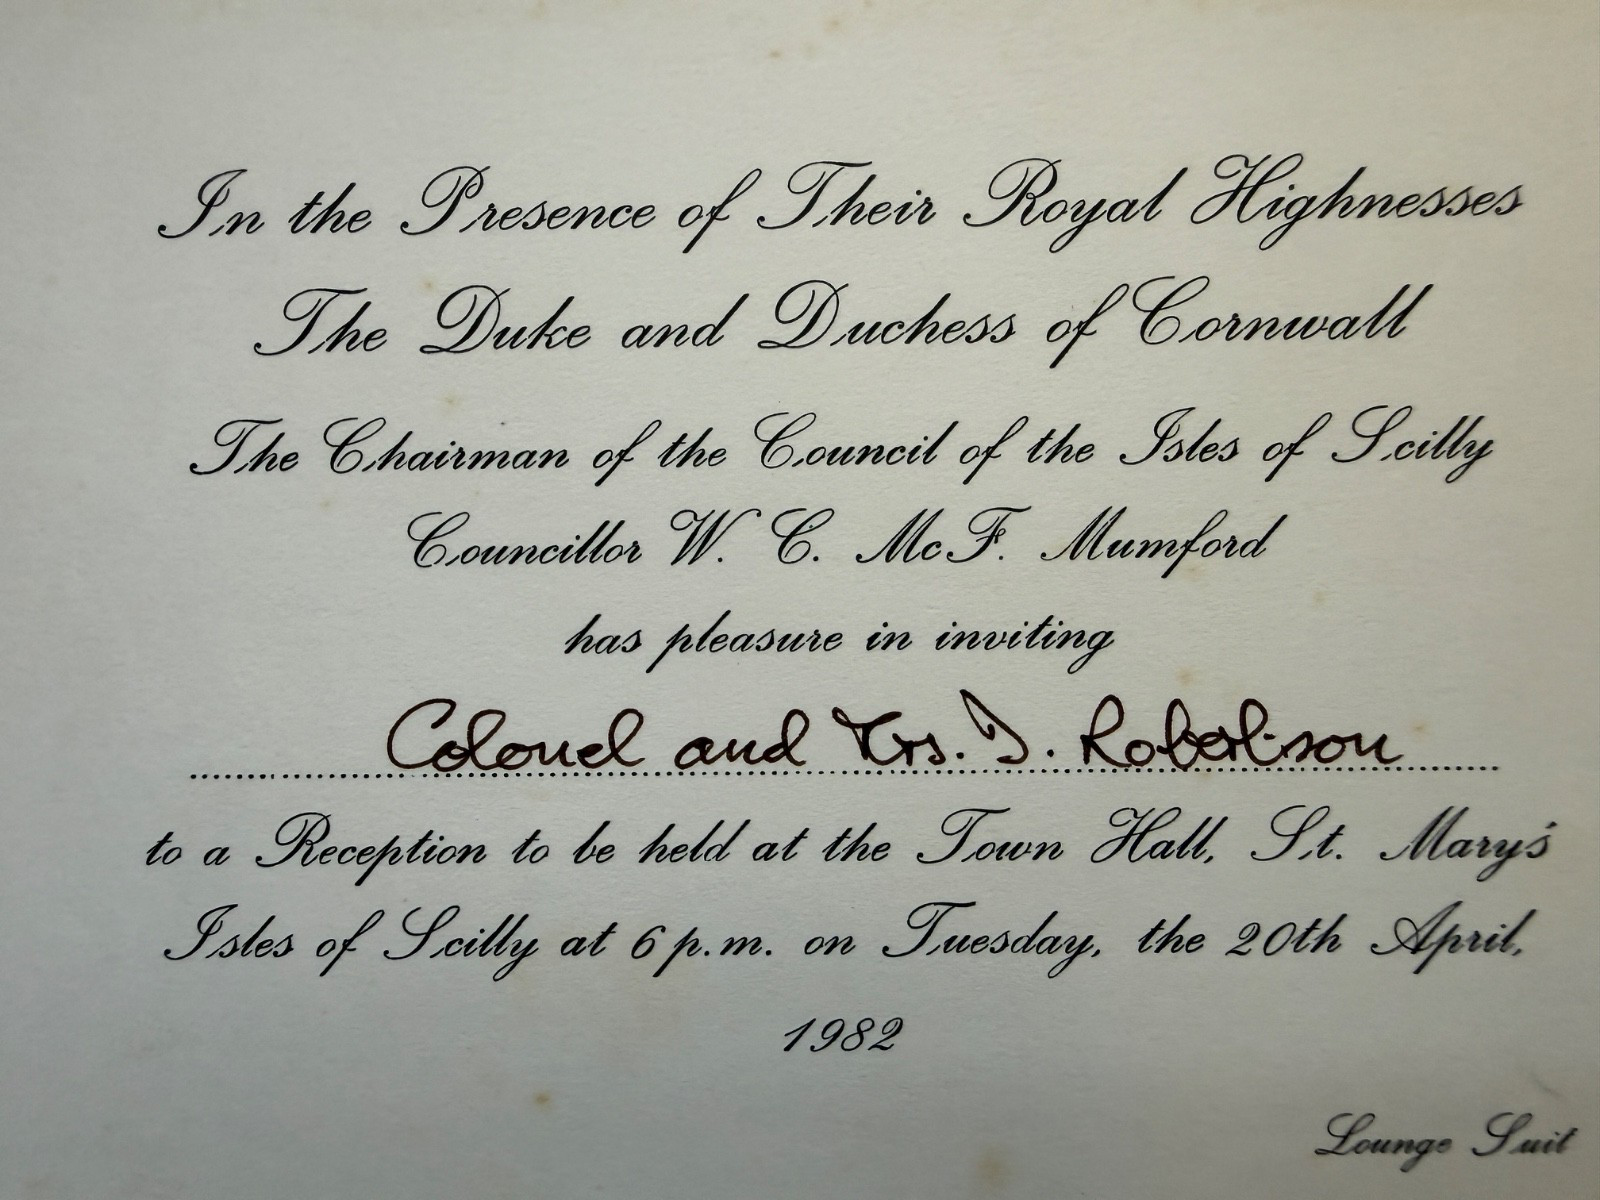 In the Presence of Their Royal Highnesses
The Duke and Duchess of Cornwall
The Chairman of the Council of the Isles of Scilly
Councillor W. C. McF. Mumford
has pleasure in inviting
Colonel and Mrs. I. Robertson
to a Reception to be held at the Town Hall, St. Mary's
Isles of Scilly at 6 p.m. on Tuesday, the 20th April,
1982
Lounge Suit